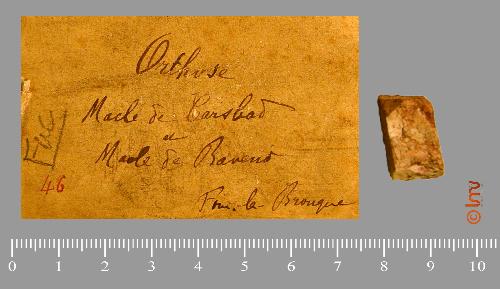 Orthose
Macle de Carsbad
et
Macle de Baveno
la Brouque
Fac
46
© lmv
0 1 2 3 4 5 6 7 8 9 10